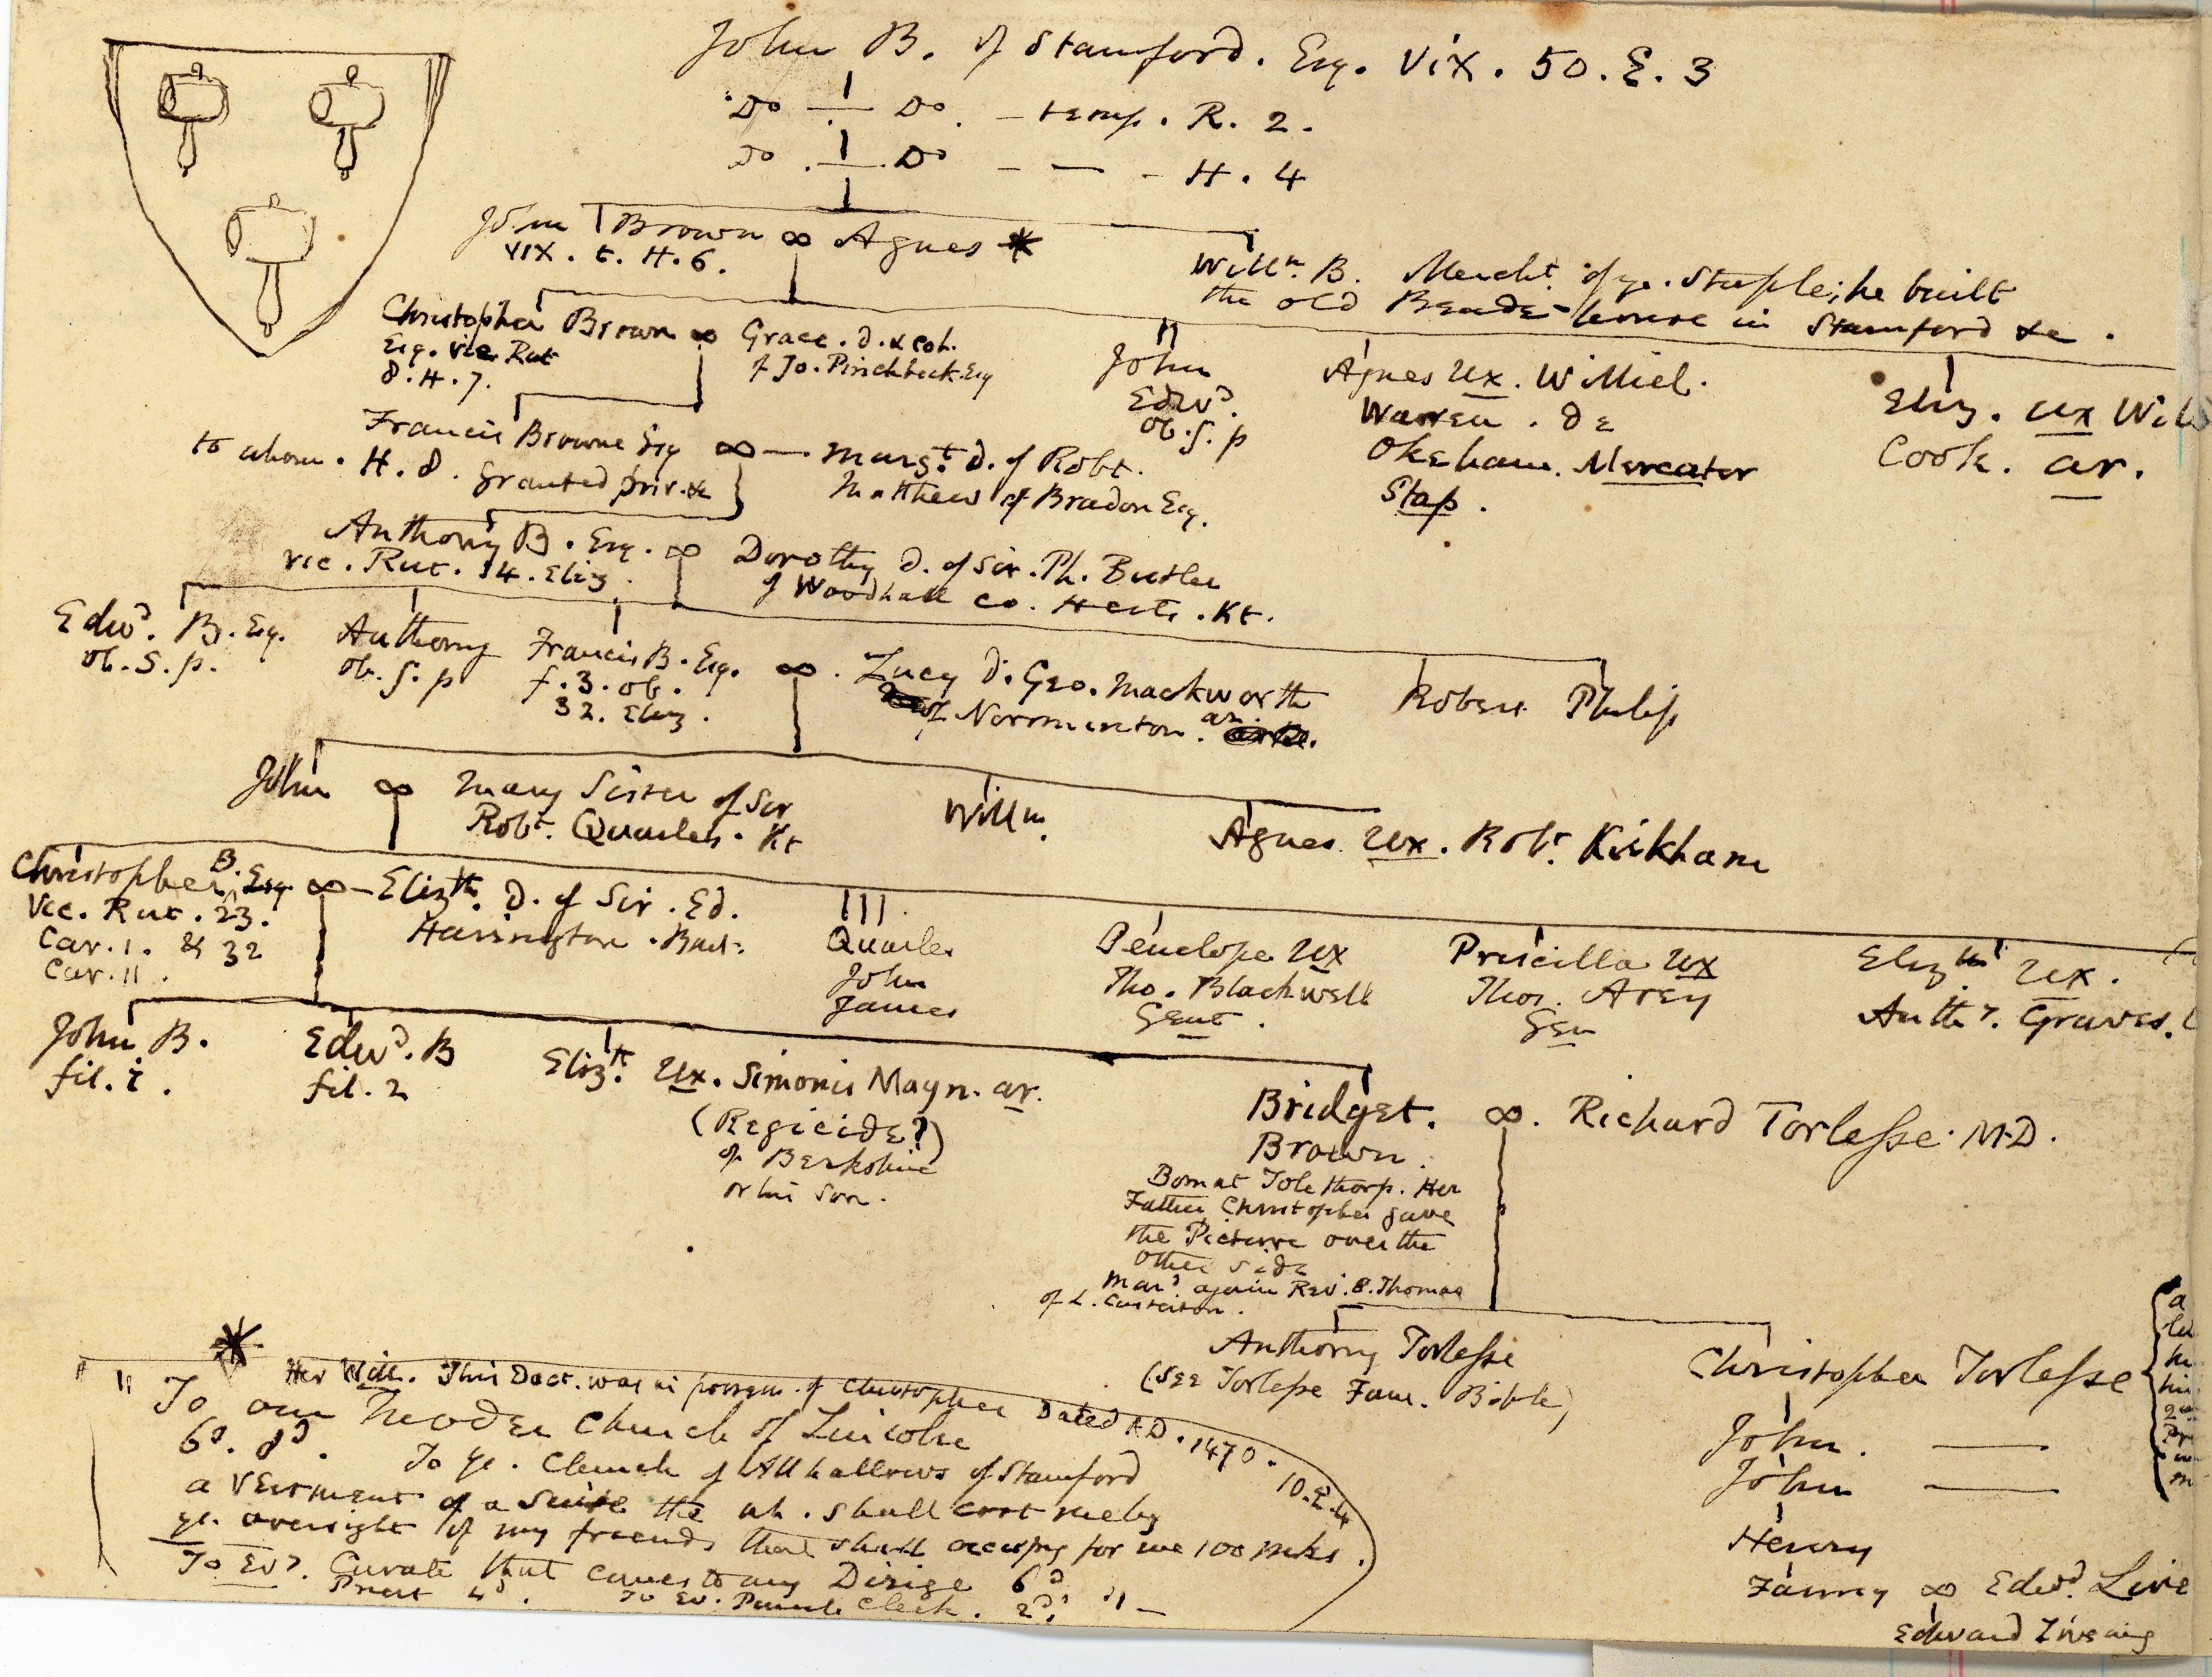 John B. of Stamford. Esq. Vix. 50. E. 3
Do Do. temp. R. 2.
Do. Do H. 4
John Brown ∞ Agnes *
vix. t. H. 6.
Willm. B. Mercht. of ye. Staple; he built
the old Beade-house in Stamford &c.
Christopher Brown ∞ Grace. d. & coh.
Esq. vic. Rut of Jo. Pinchbeck. Esq
8. H. 7.
John
Edwd.
ob. s. p
Agnes ux. Williel.
Warren. de
Okeham. Mercator
Stap.
Eliz. ux Will
Cook. ar.
Francis Browne Esq ∞ Margt. d. of Robt.
to whom. H. 8. granted priv. &c Matthew of Bradon Esq.
Anthony B. Esq. ∞ Dorothy d. of Sir. Ph. Butler
vic. Rut. 14. Eliz. of Woodhall co. Herts. Kt.
Edwd. B. Esq.
ob. s. p.
Anthony
ob. s. p
Francis B. Esq. ∞. Lucy d. Geo. Mackworth
f. 3. ob. of Normenton. ar.
32. Eliz.
Robert Philip
John ∞ Mary Sister of Sir
Robt. Quarles. Kt
Willm.
Agnes ux. Robt. Kirkham
Christopher B. Esq ∞ Elizth. D. of Sir. Ed.
Vic. Rut. 23. Harington. Bart.
Car. 1. & 32
Car. 11.
Quarles
John
James
Penelope ux
Tho. Blackwell
Gent.
Priscilla ux
Thos. Arey
Gen
Elizth ux.
Anthy. Graves.
John B.
fil. 1.
Edwd. B
fil. 2
Elizth. ux. Simonis Mayn. ar.
(Regicide?)
of Berkshire
or his son.
Bridget. ∞. Richard Torlesse. M.D.
Brown.
Born at Tolethorp. Her
Father Christopher gave
the Picture over the
other side
mard again Revd. B. Thomas
of L. Casterton.
Anthony Torlesse
(See Torlesse Fam. Bible)
Christopher Torlesse
John.
John
Henry
Fanny ∞ Edwd. Live
Edward Liveing
*
Her Will. This Doct. was in possn. of Christopher Dated A.D. 1470. 10. E. 4
"To our Moder Church of Lincolne
6s. 8d. To ye. Church of All hallows of Stamford
a vestment of a suite the wh. shall cost me by
ye. oversight of my friends that shall occupy for me 100 mks.
To evy. Curate that comes to my Dirige 6d
Priest 4d. To ev. Parish Clerk. 2d. "